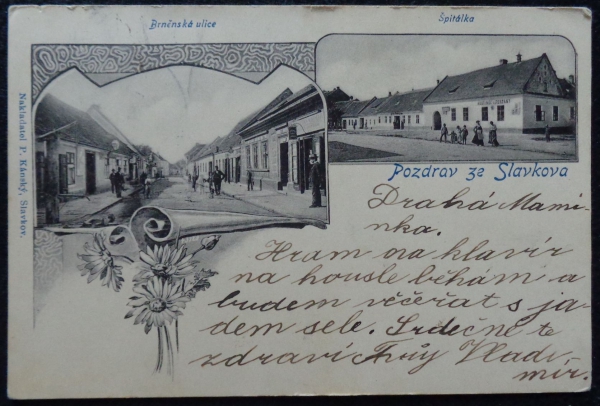 Brněnská ulice
Špitálka
Nakladatel P. Kánský, Slavkov.
Pozdrav ze Slavkova
Drahá Mami-
nko.
Hram na klavír
na housle běhám a
budem věčeřat s ja-
dem sele. Srdečně te
zdraví Vladi-
mír.